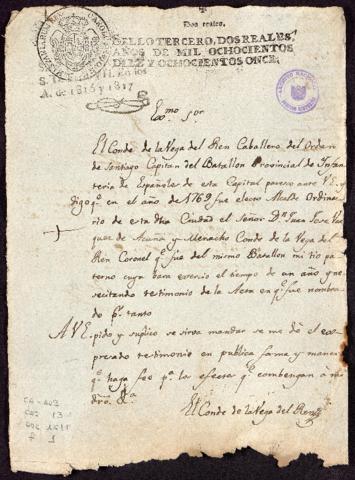 Dos reales.
SELLO TERCERO, DOS REALES,
AÑOS DE MIL OCHOCIENTOS
DIEZ Y OCHOCIENTOS ONCE.
A. de 1816 y 1817
Exmo Sor
El Conde de la Vega del Ren Caballero del Orden
de Santiago Capitan del Batallon Provincial de Infan
teria de Española de esta Capital paresco ante V.E. y
Digo qe en el año de 1769 fue electo Alcalde Ordina
rio de esta dha Ciudad el Señor Dn Juan Jose Vas
quez de Acuña y Menacho Conde de la Vega del
Ren Coronel qe fue del mismo Batallon mi tio pa
terno cuya vara exercio el tiempo de un año y ne
secitando testimonio de la Acta en qe fue nombra
do pr tanto
A V.E. pido y suplico se sirva mandar se me dé el ex
presado testimonio en publica forma y manera
qe haga fee pa los efectos qe combengan a mi
dro &a
El Conde de la Vega del Ren
CA-AO3
CAJ 13
DOC
f 1